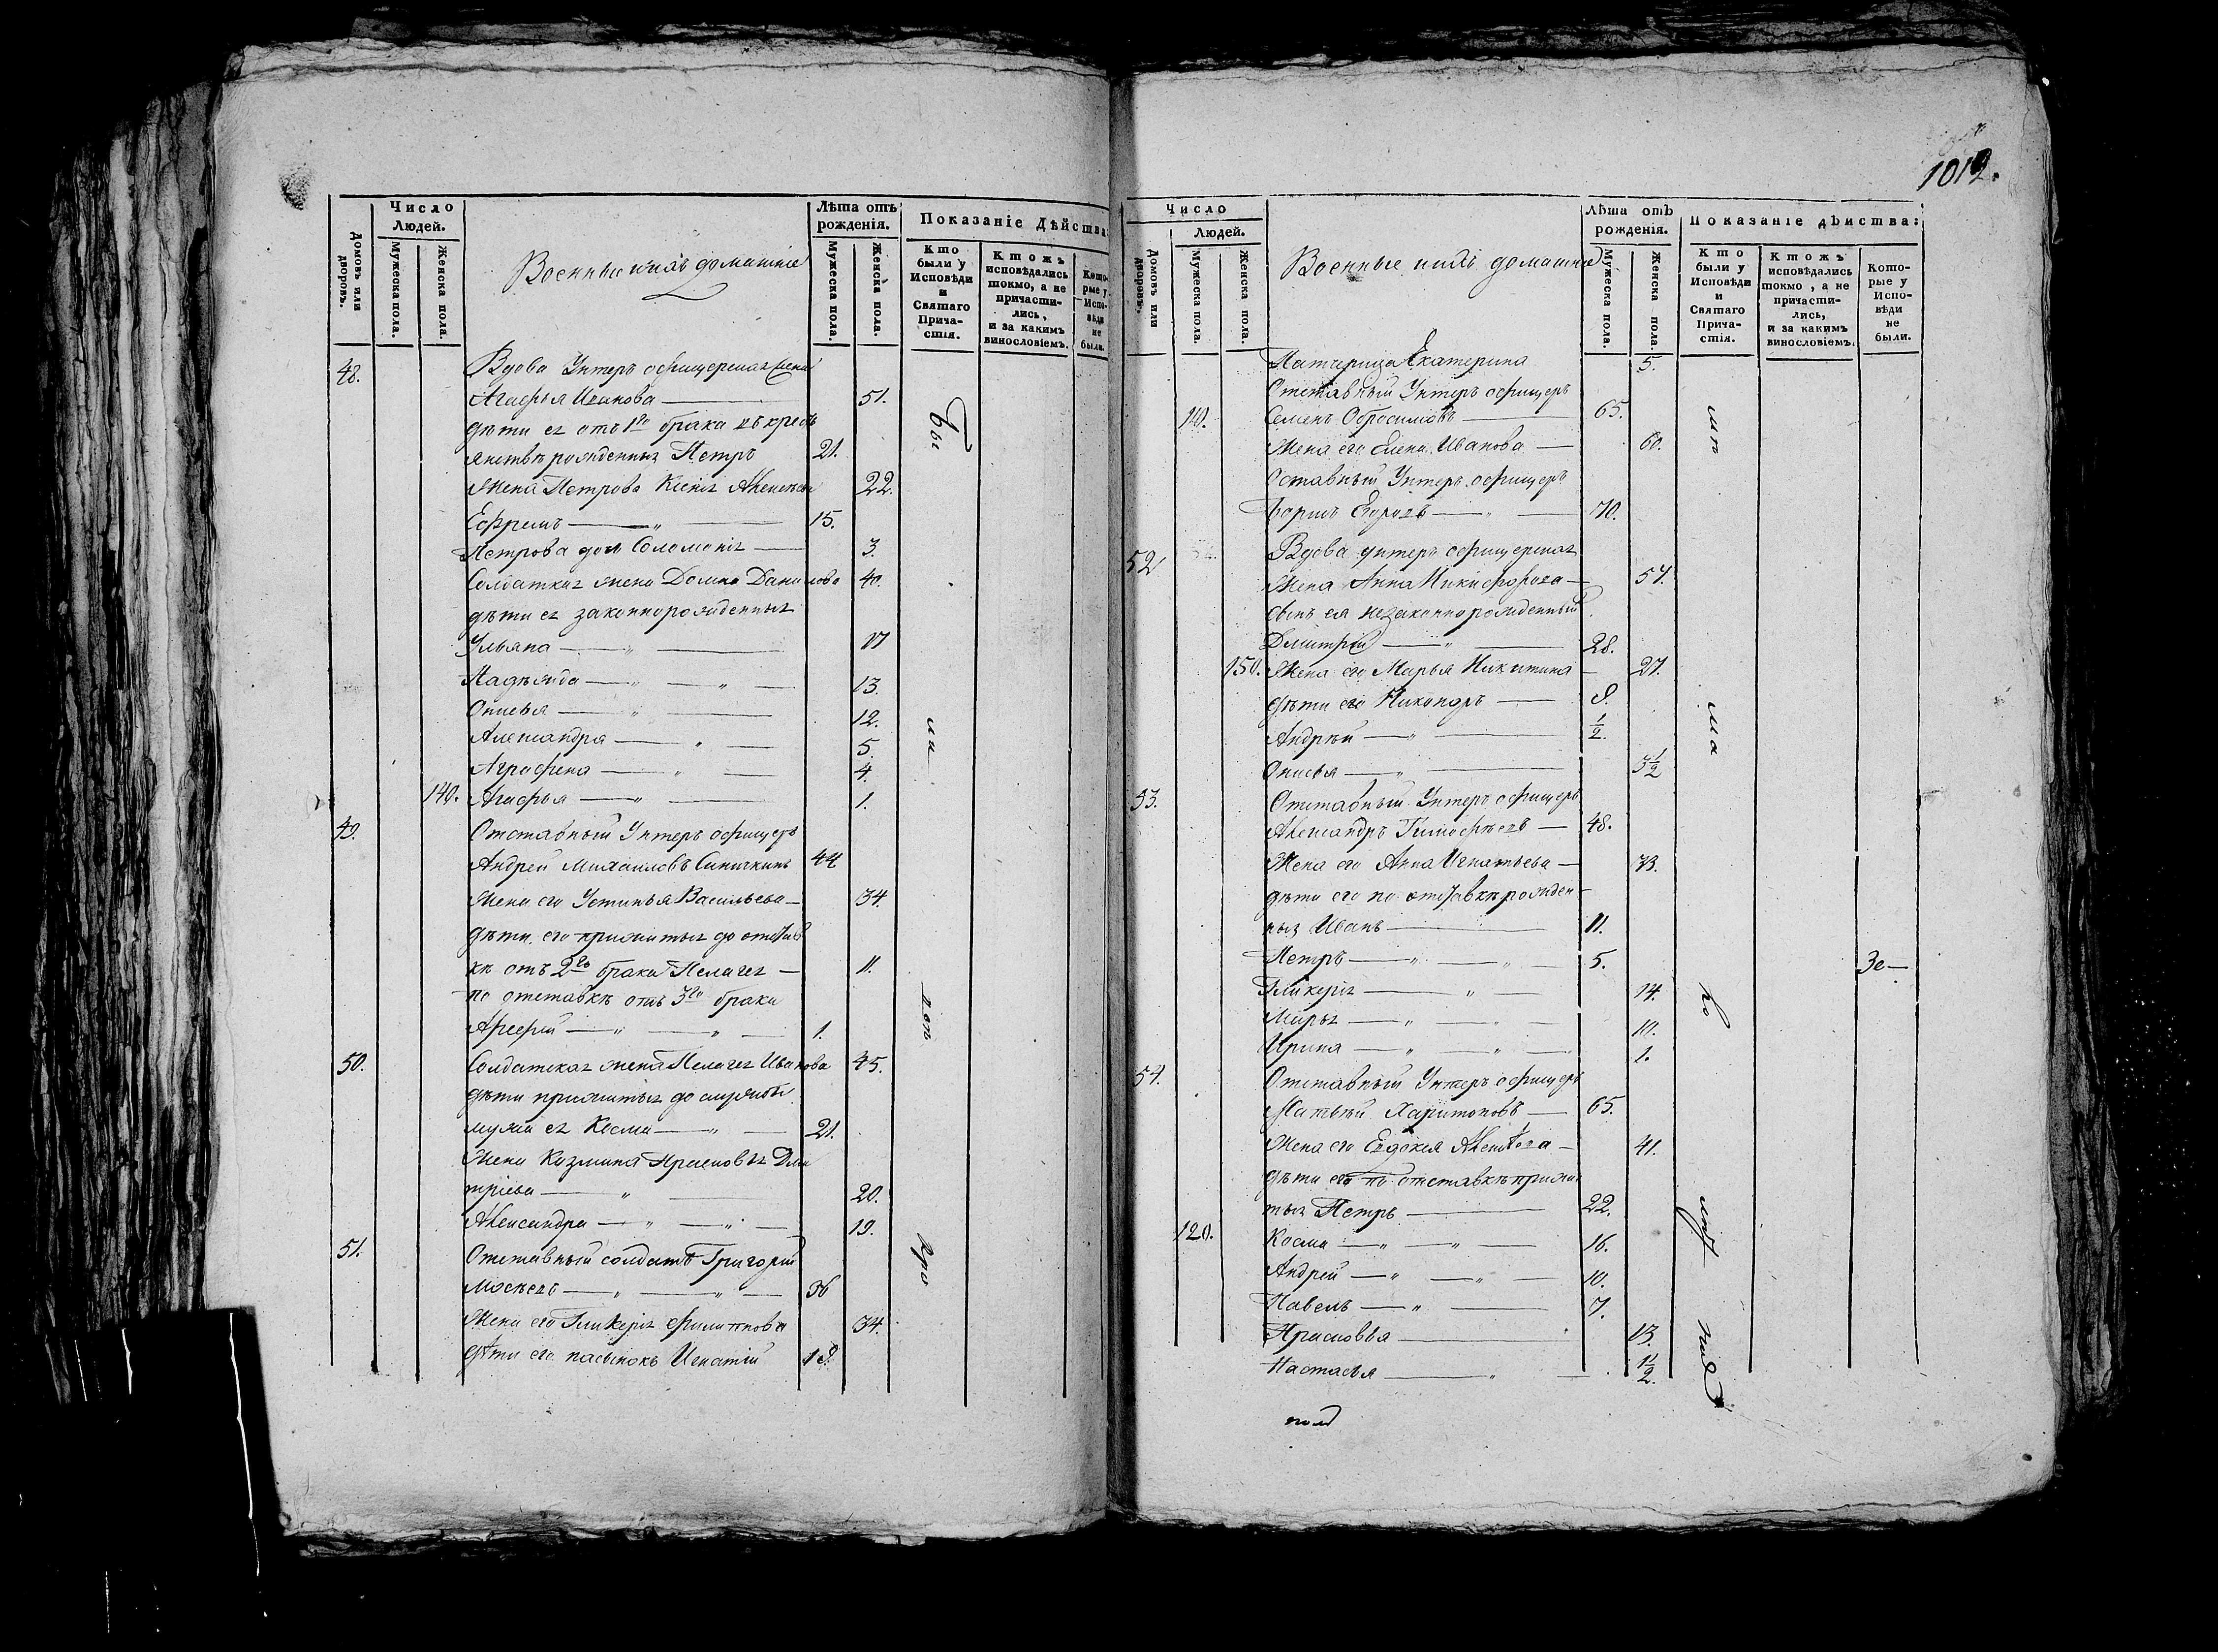 1012.
Число
Людей.
Лѣта отъ
рожденія.
Показаніе Дѣйства:
Домовъ или
дворовъ.
Мужеска пола.
Женска пола.
Военные и ихъ домашніе
Мужеска пола.
Женска пола.
Кто
были у
Исповѣди
и
Святаго
Прича-
стія.
Ктожъ
исповѣдались
токмо, а не
причасти-
лись,
и за какимъ
винословіемъ.
Кото-
рые у
Испо-
вѣди
не
были.
48. Вдова Унтеръ офицерская жена
Агафья Иванова 51.
дѣти ея отъ 1го брака въ кресть
янствѣ рожденныя Петръ 21.
Жена Петрова Ксенія Алексѣева 22.
Ефремъ 15.
Петрова дочь Соломонія 3.
Солдатская жена Домна Данилова 40.
дѣти ея законнорожденныя
Ульяна 17
Надежда 13.
Онисья 12.
Александра 5.
Аграфена 4.
140. Агафья 1.
49. Отставный Унтеръ офицеръ
Андрей Михайловъ Синичкинъ 44
Жена его Устинья Васильева 34.
дѣти его прижитыя до отстав
кѣ отъ 2го брака Пелагея 11.
по отставкѣ отъ 3го брака
1.
50. Солдатская жена Пелагея Иванова 45.
дѣти прижитыя до службы
мужа ея Косма 21.
Жена Козмина Прасковья Дми
тріева 20.
Александра 19.
51. Отставный солдатъ Григорій
Мосѣевъ 36
Жена его Гликерія Филиппова 34.
дѣти его пасынокъ Игнатій 18.
Число
Людей.
Лѣта отъ
рожденія.
Показаніе дѣйства:
Домовъ или
дворовъ.
Мужеска пола.
Женска пола.
Военные и ихъ домашніе
Мужеска пола.
Женска пола.
Кто
были у
Исповѣди
и
Святаго
Прича-
стія.
Ктожъ
исповѣдались
токмо, а не
причасти-
лись,
и за какимъ
винословіемъ.
Кото-
рые у
Испо-
вѣди
не
были.
Патчерица Екатерина 5.
Отставный Унтеръ офицеръ
110. Семенъ Обросимовъ 65.
Жена его Елена Иванова 60.
Оставный Унтеръ офицеръ
Борисъ Егоровъ 70.
52 Вдова унтеръ офицерская
Жена Анна Никифорова 57.
сынъ ея незаконнорожденный
Дмитрій 28.
150. Жена его Марья Никитина 27.
дѣти его Никаноръ 8.
Андрей 1/2.
Онисья 3 1/2
53. Отставный Унтеръ офицеръ
Александръ Тимофѣевъ 48.
Жена его Анна Игнатьева 33.
дѣти его по отставкѣ рожден-
ныя Иванъ 11.
Петръ 5. Зе—
Гликерія 14.
Марья 10.
Ирина 1.
54. Отставный Унтеръ офицеръ
Матвѣй Харитоновъ 65.
Жена его Евдокія 41.
дѣти его по отставкѣ прижи
тыя Петръ 22.
120. Косма 16.
Андрей 10.
Павелъ 7.
Прасковья 13.
Настасья 1 1/2.